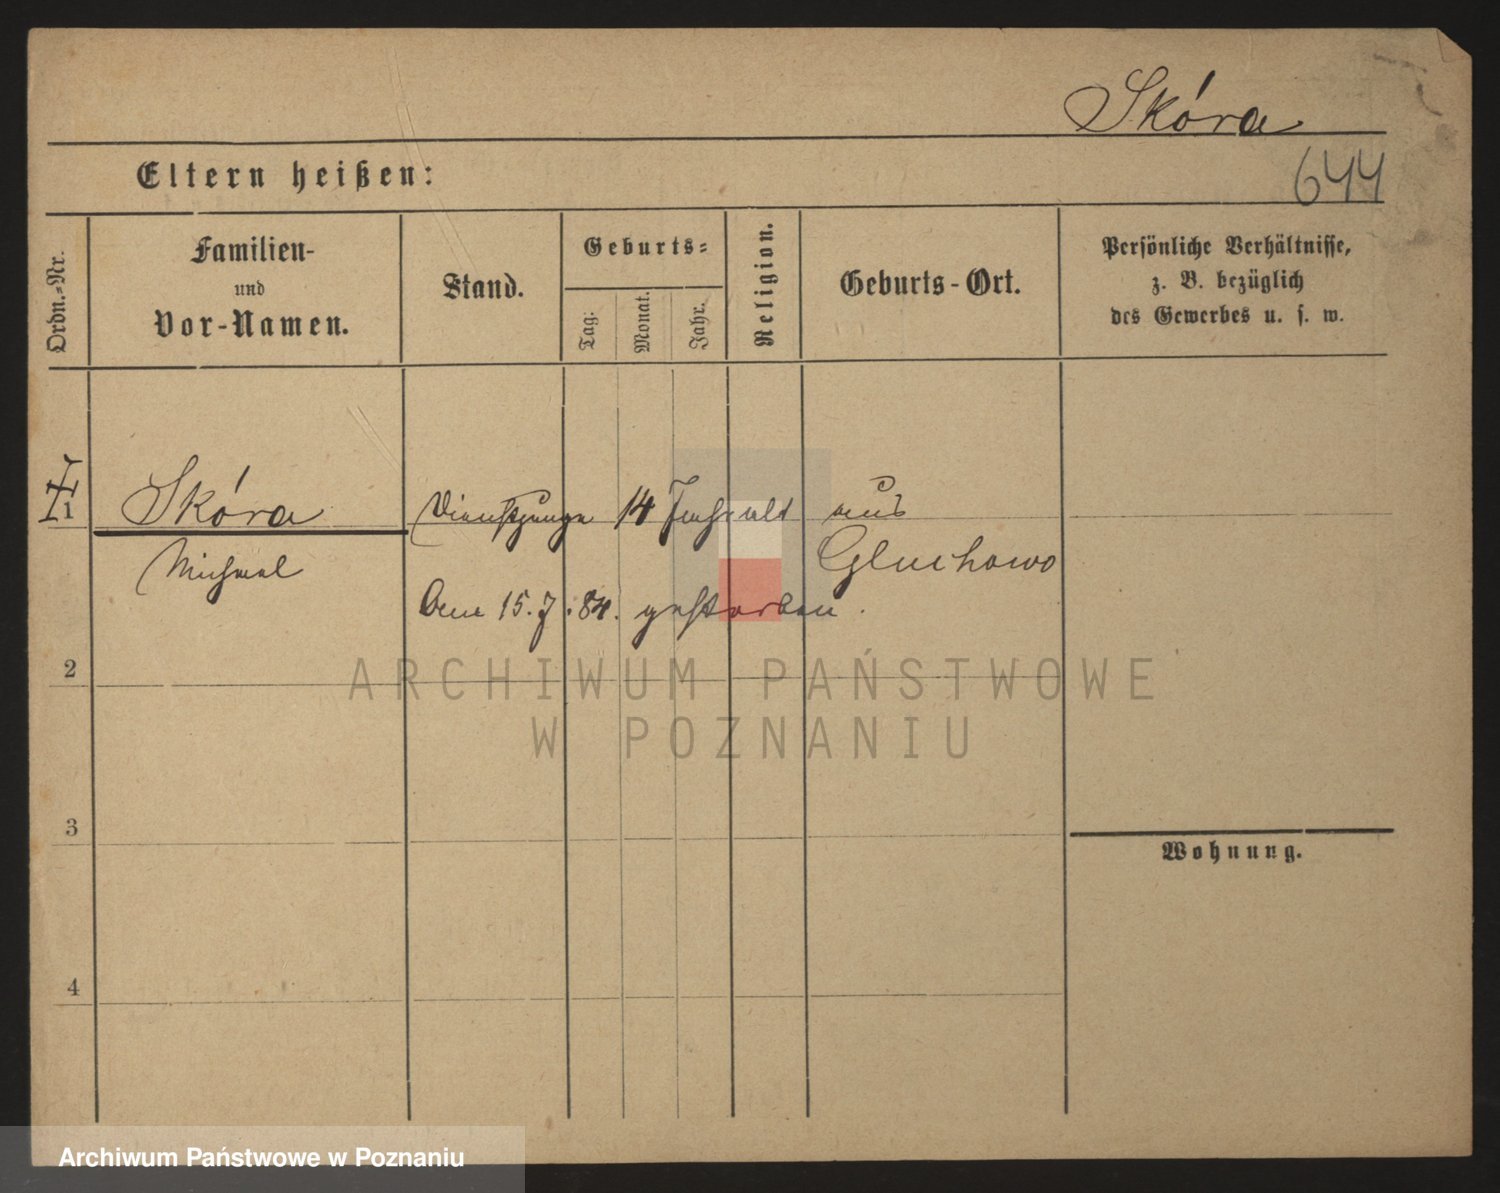 Skóra
Eltern heißen:
644
Ordn.-Nr.
Familien-
und
Vor-Namen.
Stand.
Geburts-
Tag:
Monat.
Jahr.
Religion.
Geburts-Ort.
Persönliche Verhältnisse,
z. B. bezüglich
des Gewerbes u. s. w.
1 Skóra Dienstjunge 14 Jahr alt aus
Michael Gluchowo
15. 7. 84. gestorben.
2
ARCHIWUM PAŃSTWOWE
W POZNANIU
3
Wohnung.
4
Archiwum Państwowe w Poznaniu